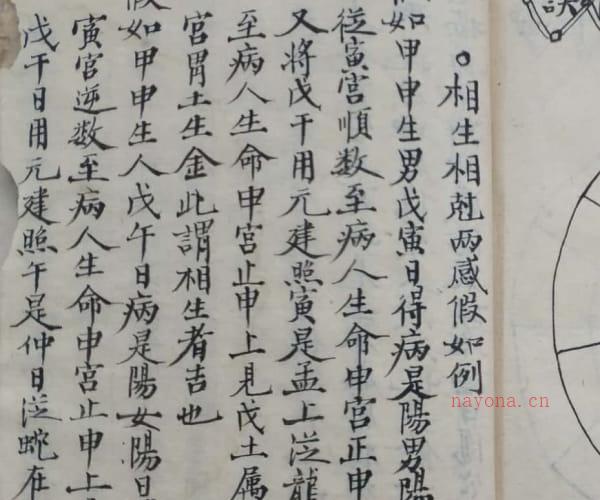 訣
○相生相尅两感假如例
假如甲申生男戊寅日得病是陽男陽
従寅宫順数至病人生命申宫正申
又將戊干用元建照寅是孟上泛龍
至病人生命申宫止申上見戊土属
宫胃土生金此謂相生者吉也
假如甲申生人戊午日病是陽女陽日
寅宫逆数至病人生命申宫止申上
戊干日用元建照午是仲日泛蛇在
nayona.cn